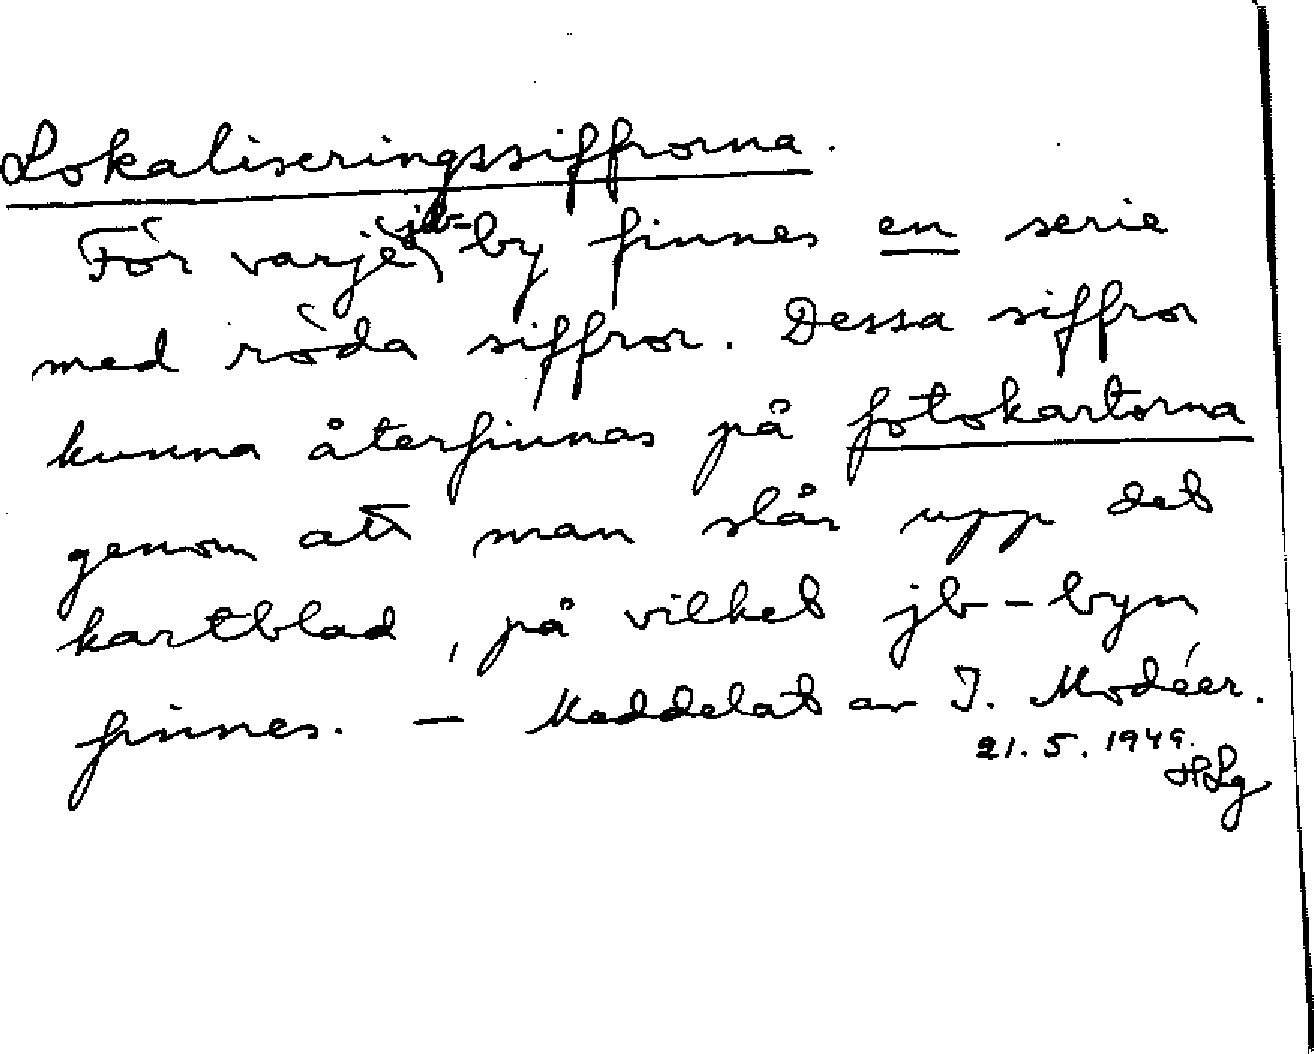 Lokaliseringssiffrorna.
För varje jb-by finnes en serie
med röda siffror. Dessa siffror
kunna återfinnas på fotokartorna
genom att man slår upp det
kartblad, på vilket jb-byn
finnes. — Meddelat av I. Modéer.
21.5.1949.
HLg